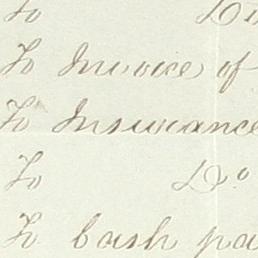 To Do
To Invoice of
To Insurance
To Do
To Cash pa